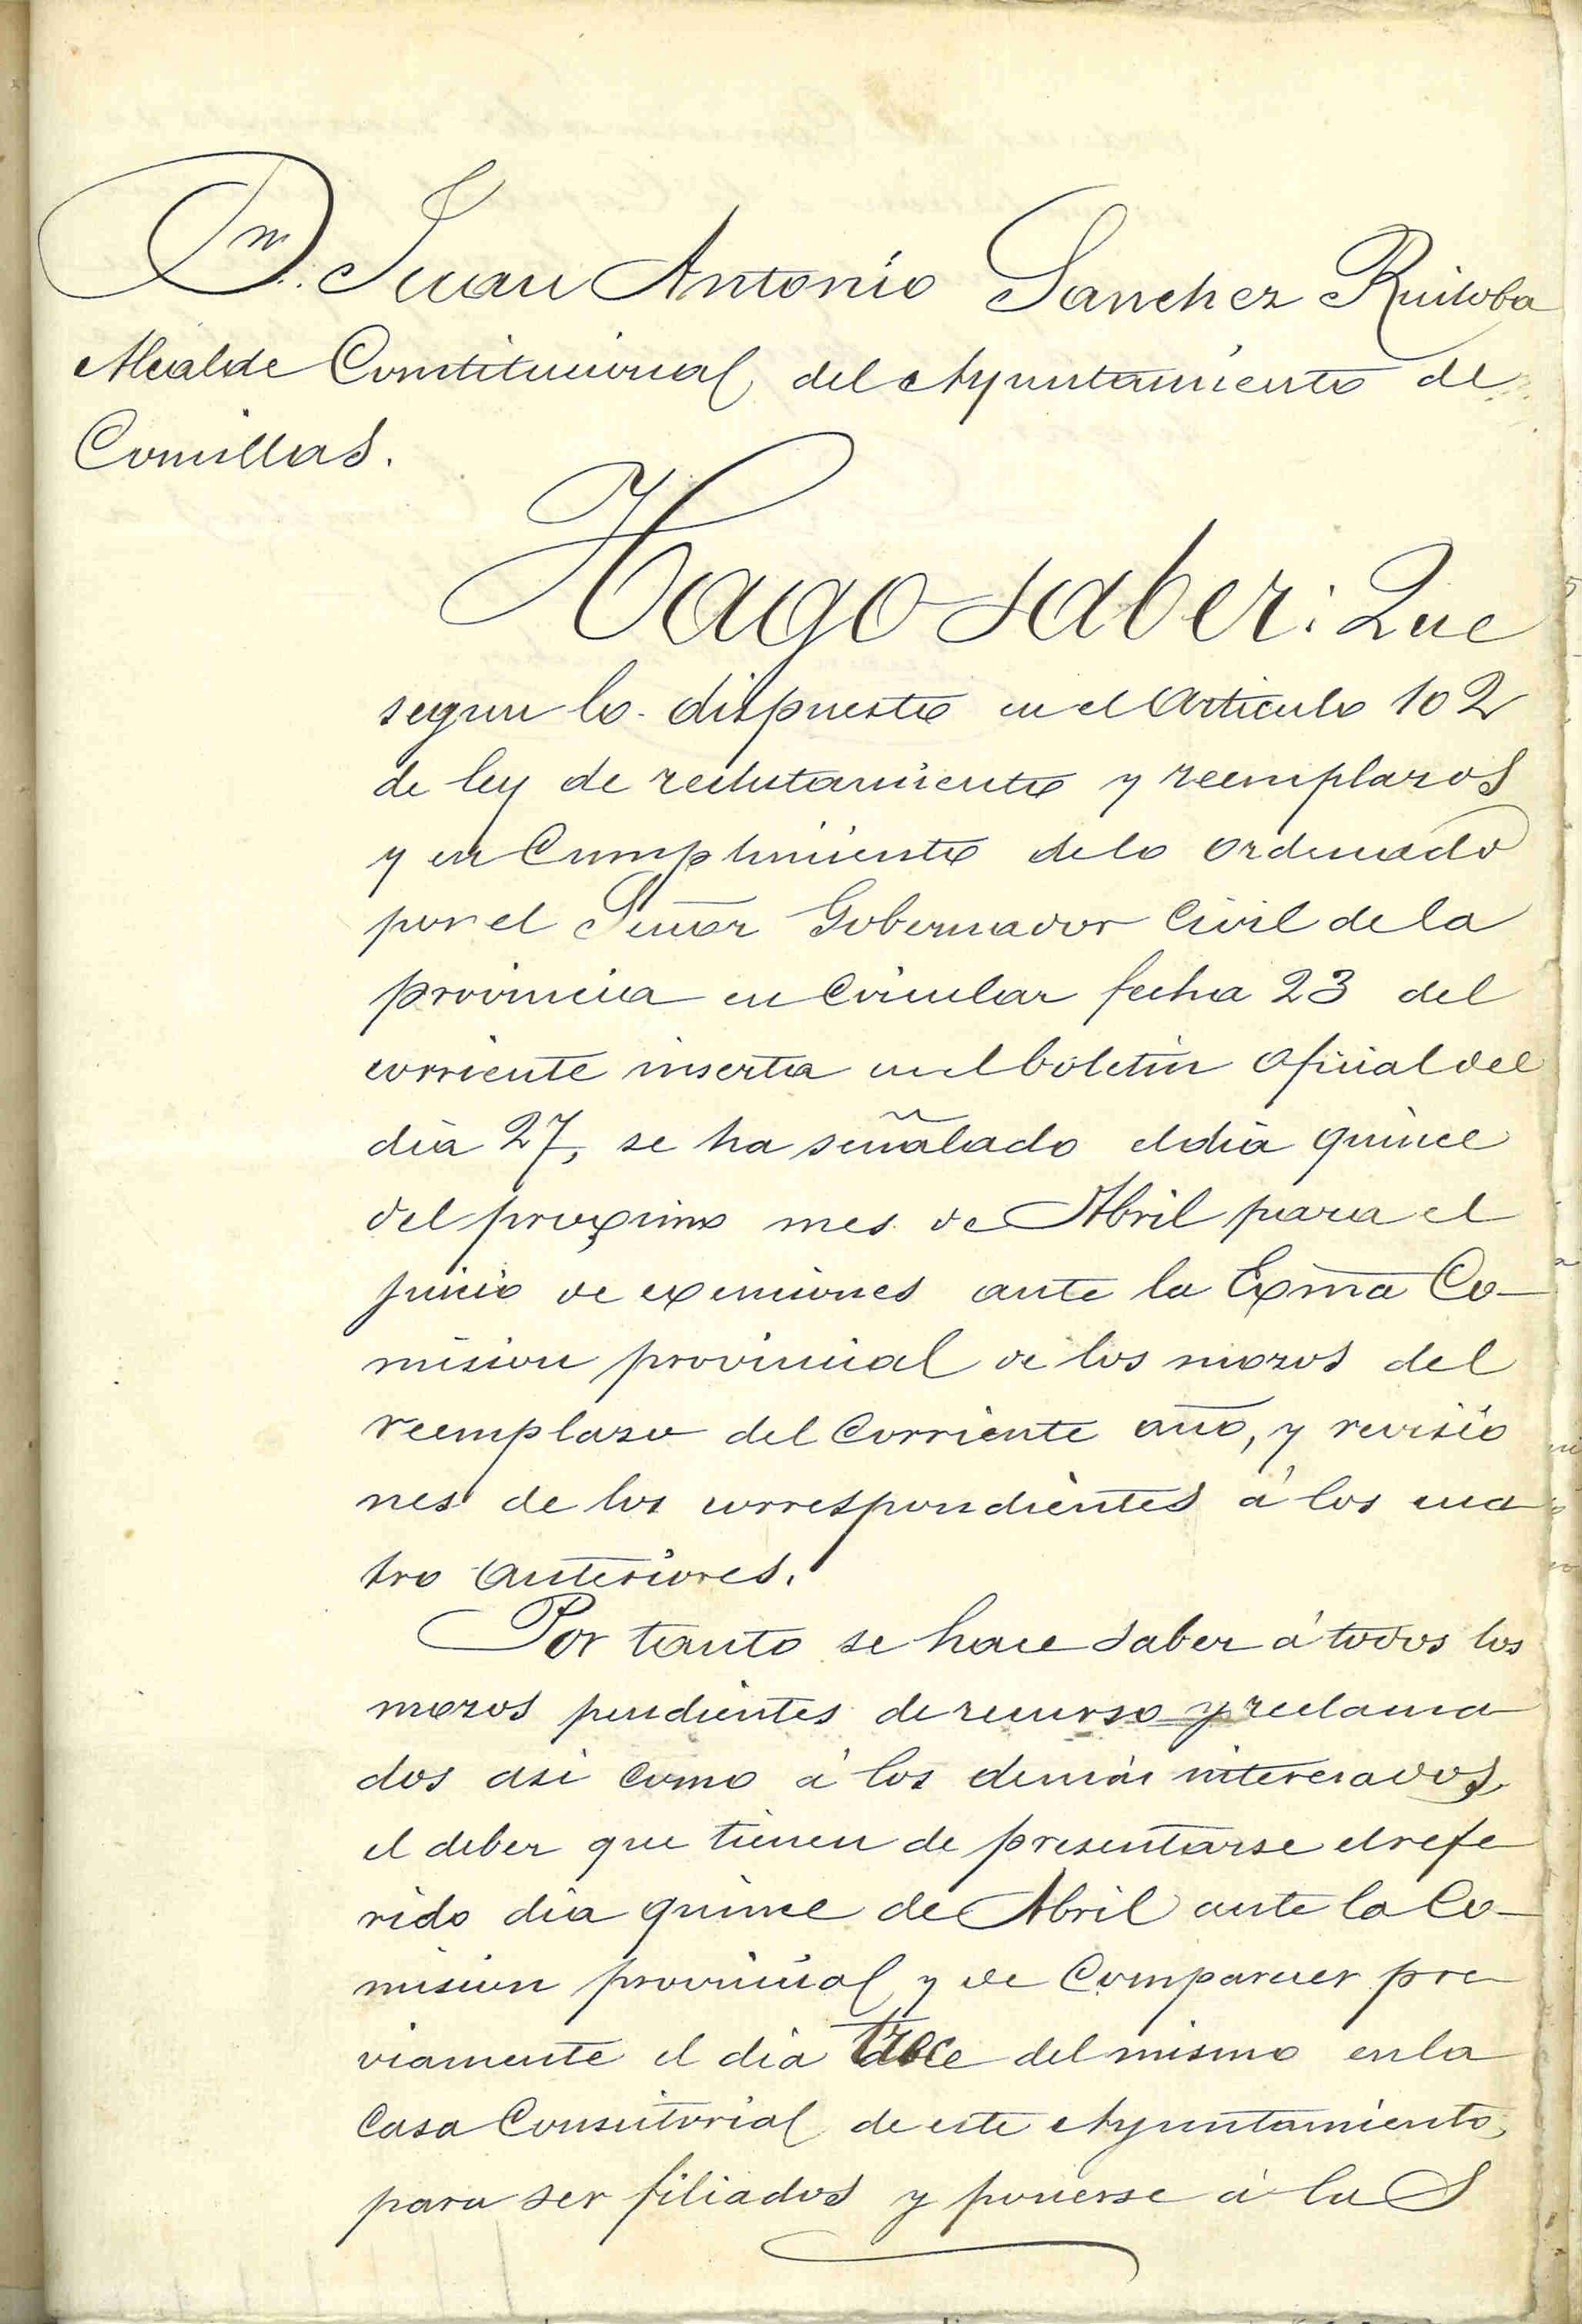 Dn. Juan Antonio Sanchez Ruiloba
Alcalde Constitucional del Ayuntamiento de
Comillas.
Hago saber: Que
segun lo dispuesto en el Articulo 102
de ley de reclutamiento y reemplazos
y en Cumplimiento de lo ordenado
por el Señor Gobernador Civil de la
provincia en Circular fecha 23 del
corriente inserta en el boletin oficial del
dia 27, se ha señalado el dia quince
del proximo mes de Abril para el
juicio de exenciones ante la Exma Co-
mision provincial de los mozos del
reemplazo del Corriente año, y revisio
nes de los correspondientes á los cua
tro anteriores.
Por tanto se hace saber á todos los
mozos pendientes de recurso y reclama
dos asi como á los demás interesados,
el deber que tienen de presentarse el refe
rido dia quince de Abril ante la Co-
mision provincial y de Comparecer pre
viamente el dia trece del mismo en la
Casa Consistorial de este Ayuntamiento,
para ser filiados y ponerse á la S